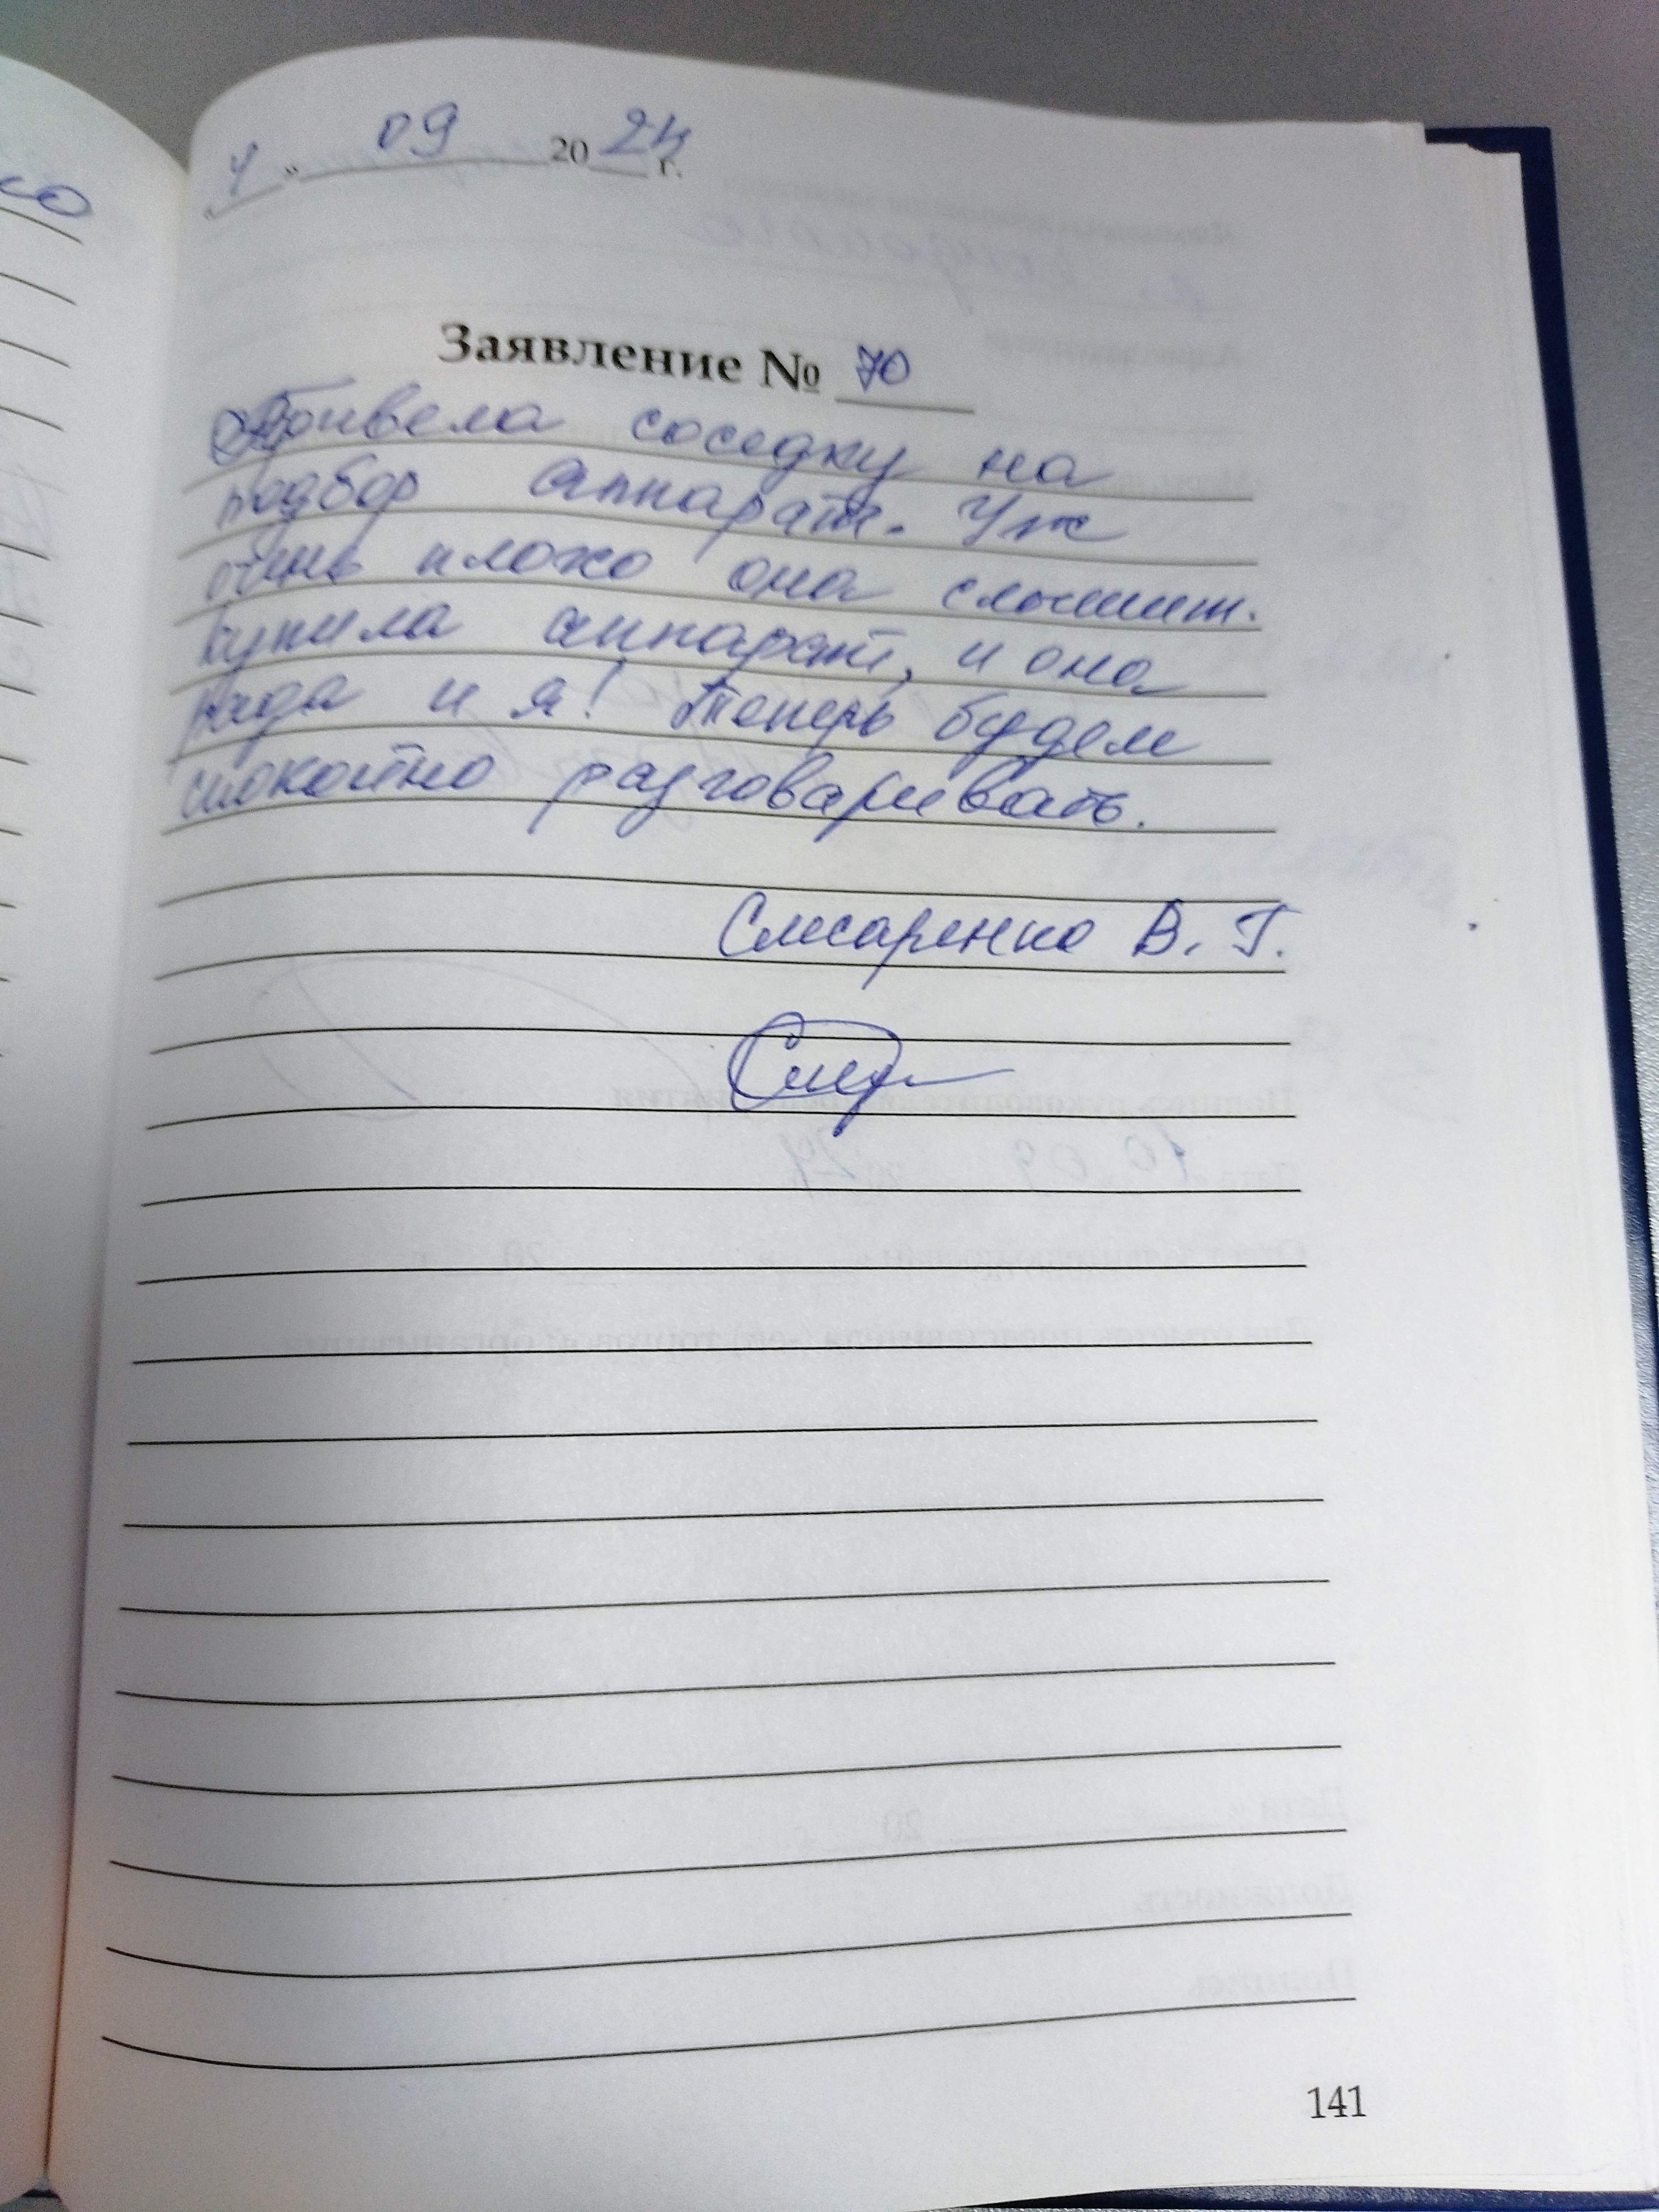 4 » 09 2024 г.
Заявление № 70
Привела соседку на
подбор аппарат. Уж
очень плохо она слышит.
купила аппарат, и она
рада и я! Теперь будем
спокойно разговаривать.
Слесаренко В. Г.
141